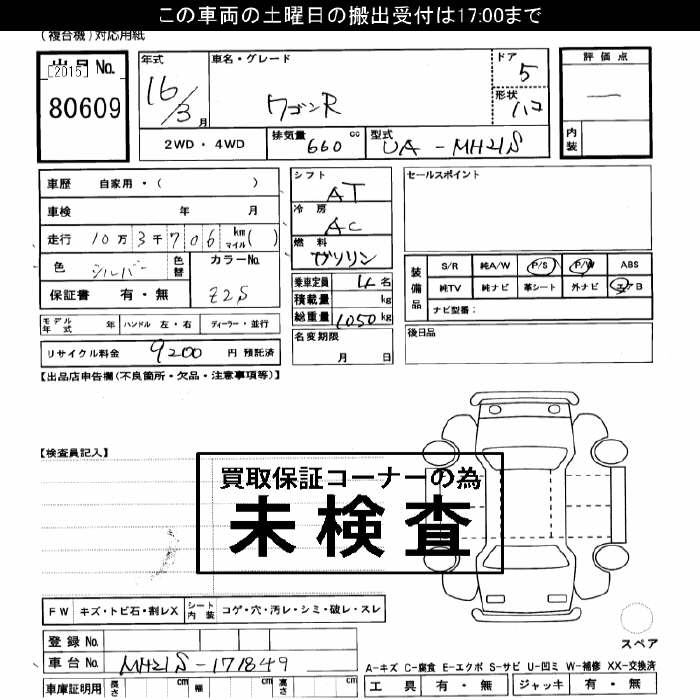 この車両の土曜日の搬出受付は17:00まで
(複台機)対応用紙
出品No.
[2015]
80609
年式
16/3月
車名・グレード
ワゴンR
ドア
5
形状
ハコ
評価点
—
内装
2WD・4WD
排気量 660 cc
型式 UA-MH21S
車歴 自家用・( )
車検 年 月
走行 10万3千706 km マイル( )
色 シルバー 色替
カラーNo. Z2S
保証書 有・無
シフト AT
冷房 AC
燃料 ガソリン
乗車定員 4名
積載量 kg
総重量 1050 kg
名変期限
月 日
セールスポイント
装備品
S/R 純A/W P/S P/W ABS
純TV 純ナビ 革シート 外ナビ エアB
ナビ型番:
後日品
モデル年式 年 ハンドル 左・右 ディーラー・並行
リサイクル料金 9200 円 預託済
【出品店申告欄(不良箇所・欠品・注意事項等)】
【検査員記入】
買取保証コーナーの為
未検査
FW キズ・トビ石・割レX シート内装 コゲ・穴・汚レ・シミ・破レ・スレ
スペア
登録No.
車台No. MH21S-171849
車庫証明用 長さ cm 幅 cm 高さ cm
A-キズ C-腐食 E-エクボ S-サビ U-凹ミ W-補修 XX-交換済
工具 有・無 ジャッキ 有・無